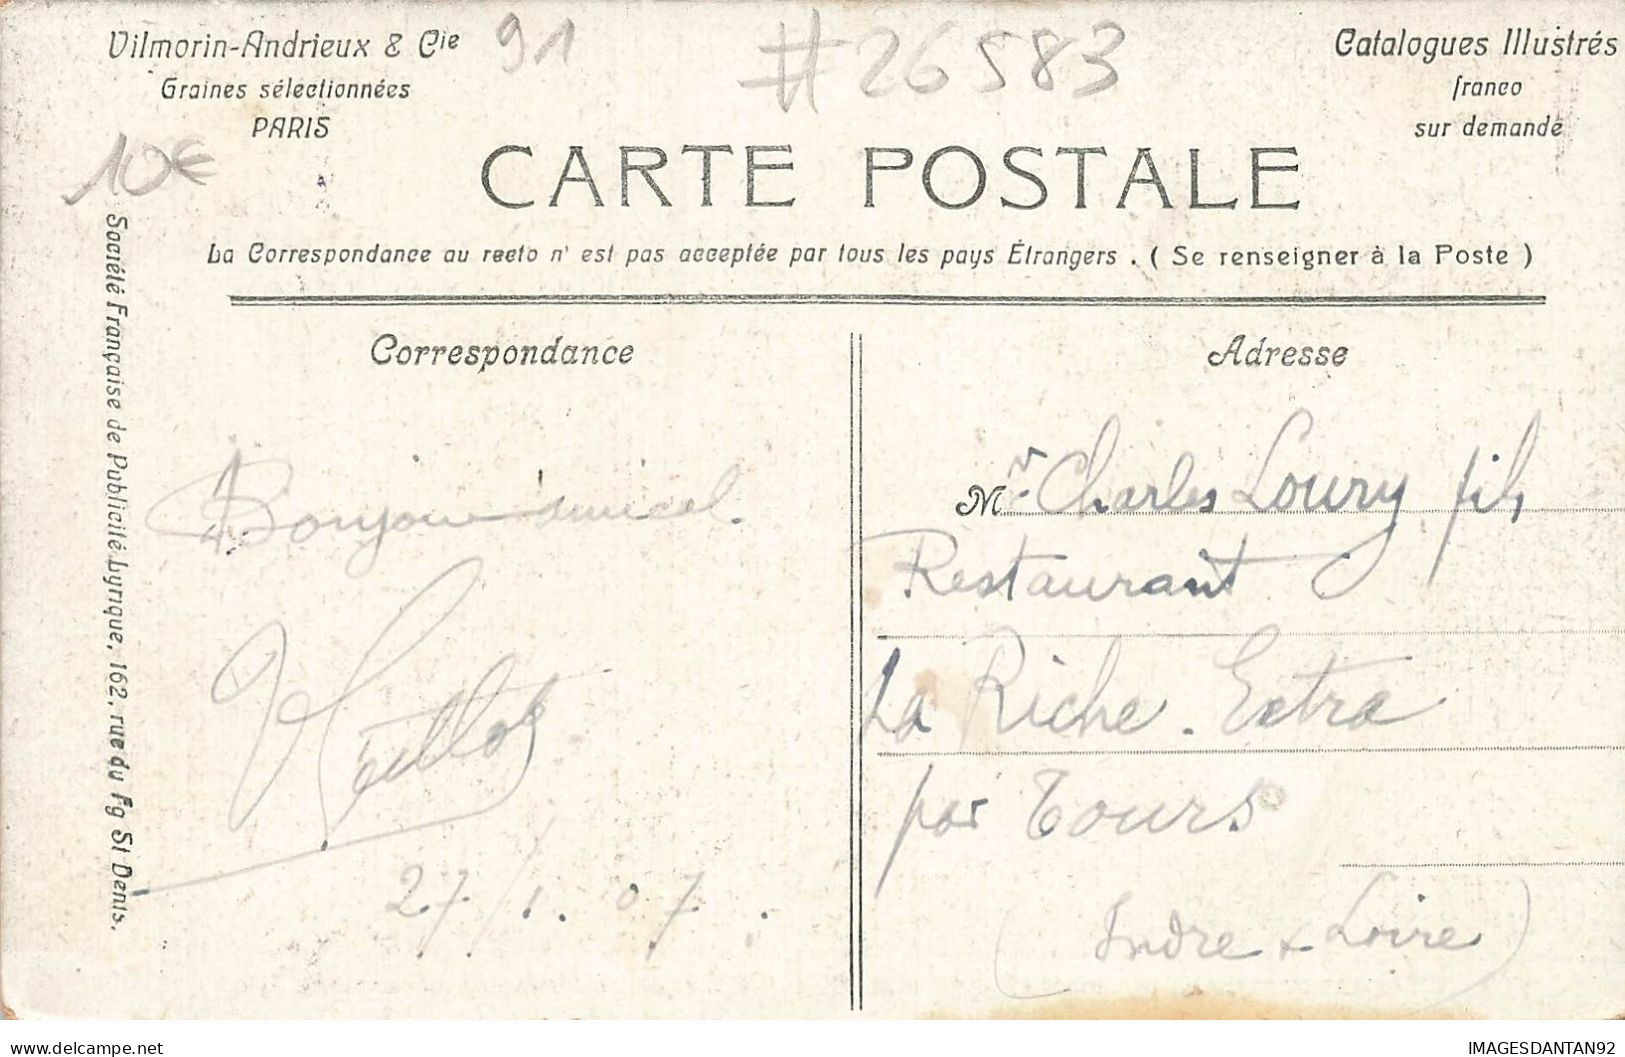 Vilmorin-Andrieux & Cie
Graines sélectionnées
PARIS
91
#26583
Catalogues Illustrés
franco
sur demande
10€
CARTE POSTALE
La Correspondance au recto n'est pas acceptée par tous les pays Étrangers. (Se renseigner à la Poste)
Société Française de Publicité Lyrique, 162, rue du Fg St Denis.
Correspondance
Bonjour amical.
27/1.07.
Adresse
Mr. Charles Loury fils
Restaurant
La Riche-Extra
par Tours
(Indre & Loire)
delcampe.net
IMAGESDANTAN92